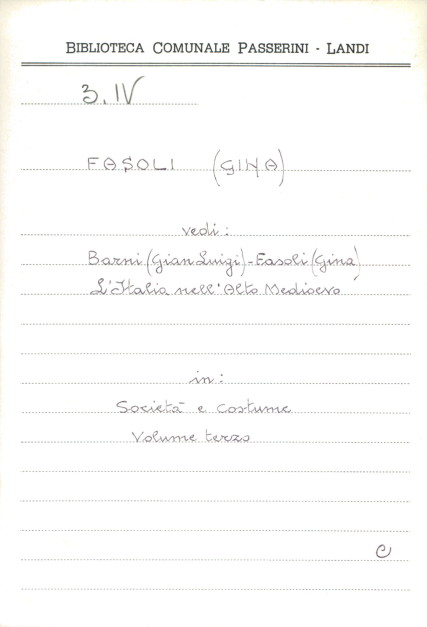 BIBLIOTECA COMUNALE PASSERINI - LANDI
3. IV
FASOLI (GINA)
vedi:
Barni (Gian Luigi) - Fasoli (Gina)
L'Italia nell'Alto Medioevo
in:
Società e Costume
Volume terzo
C